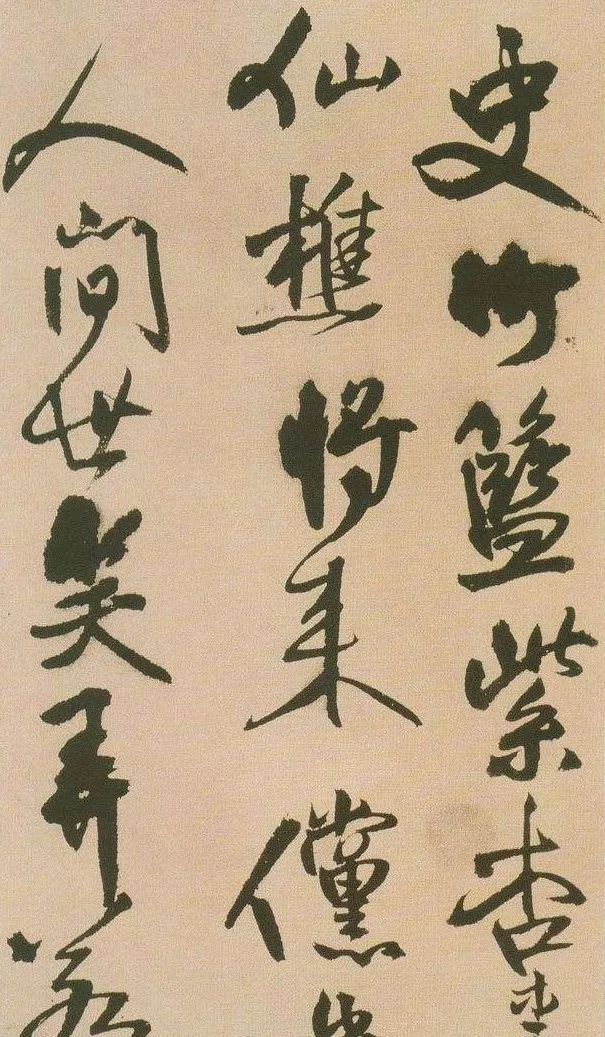 史竹籃紫杏
仙樵將来儻出
人間世笑弄